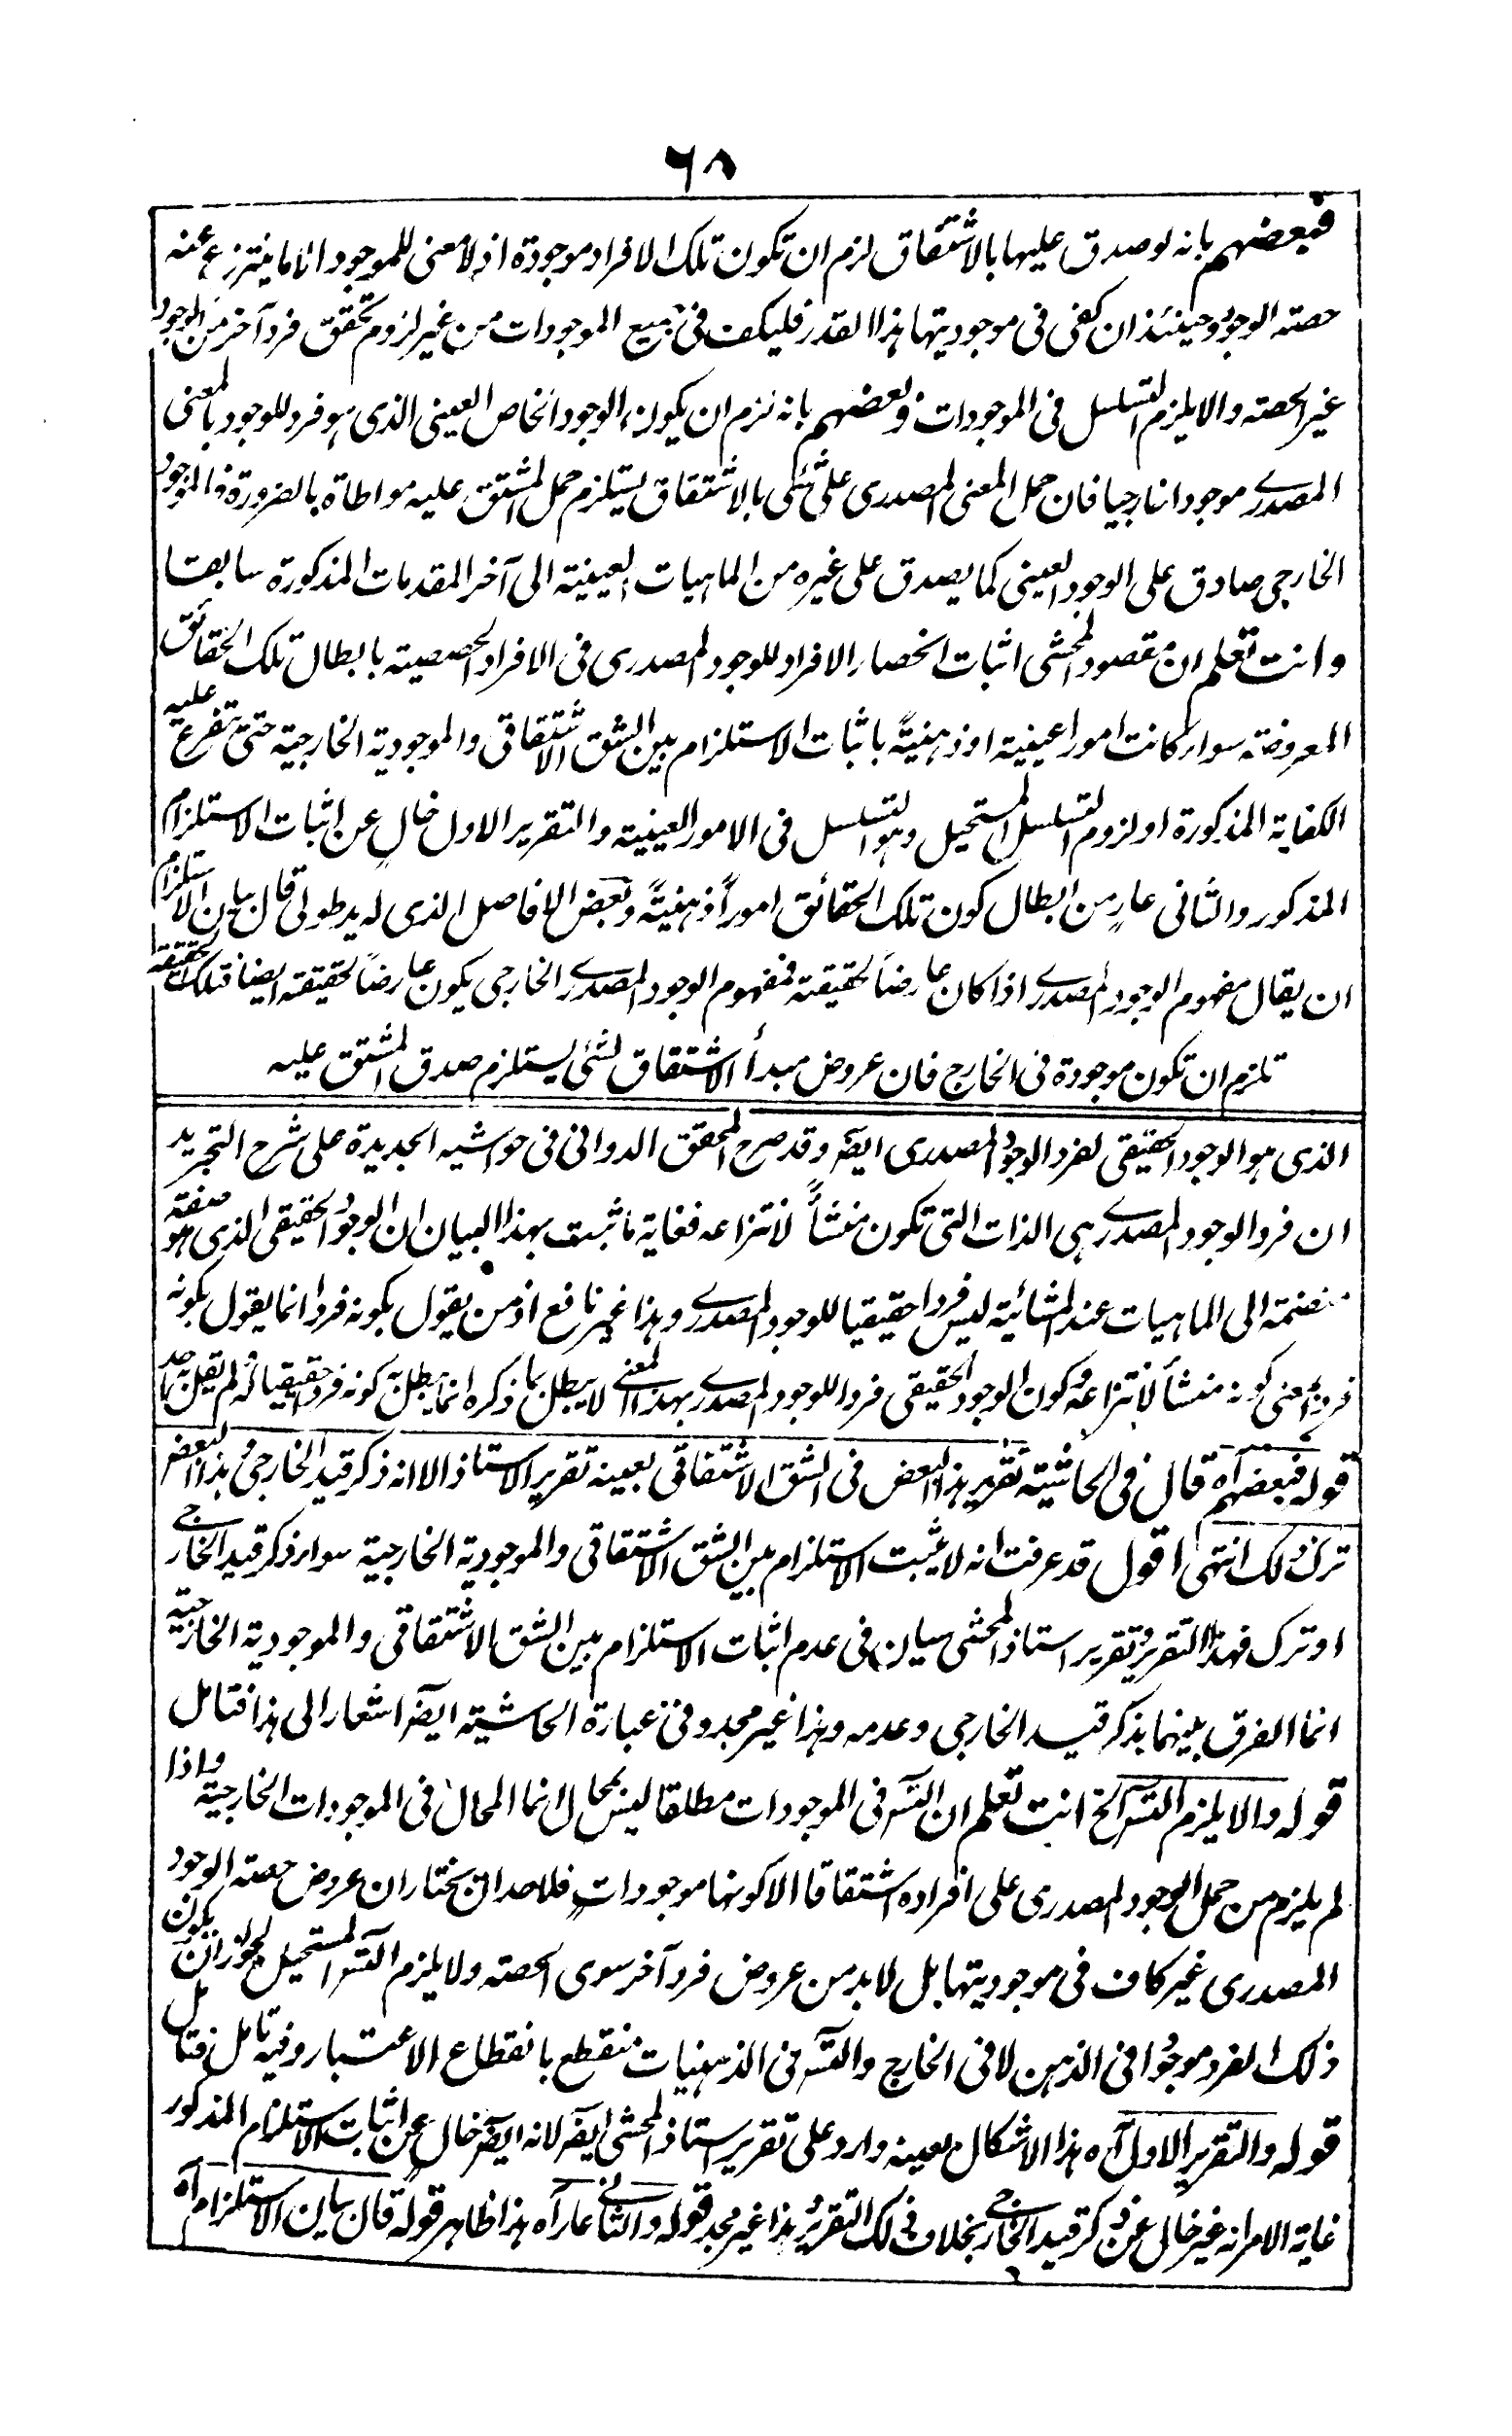 ٦٨
فبعضهم بانه لو صدق عليها بالاشتقاق لزم ان تكون تلك الافراد موجودة اذ لا معنى للموجود الا ما ينتزع عنه
حصته الوجود وحينئذ ان كفى فى موجوديتها هذا القدر فليكف فى جميع الموجودات من غير لزوم تحقق فرد آخر من الوجود
غير الحصة والا يلزم التسلسل فى الموجودات وبعضهم بانه لزم ان يكون الوجود الخاص العينى الذى هو فرد للوجود بالمعنى
المصدرى موجودا خارجيا فان حمل المعنى المصدرى على شئ بالاشتقاق يستلزم حمل المشتق عليه مواطاة بالضرورة فالموجود
الخارجى صادق على الوجود العينى كما يصدق على غيره من الماهيات العينية الى آخر المقدمات المذكورة سابقا
وانت تعلم ان مقصود المحشى اثبات انحصار الافراد للوجود المصدرى فى الافراد الحصصية بابطال تلك الحقائق
المعروضة سواء كانت امورا عينية او ذهنيةً باثبات الاستلزام بين الشق الاشتقاقى والموجودية الخارجية حتى يتفرع عليه
الكفاية المذكورة او لزوم التسلسل المستحيل وهو التسلسل فى الامور العينية والتقرير الاول خالٍ عن اثبات الاستلزام
المذكور والثانى عارٍ من ابطال كون تلك الحقائق اموراً ذهنيةً وبعض الافاضل الذى له يد طولى قال بيان الاستلزام
ان يقال مفهوم الوجود المصدرى اذا كان عارضاً لحقيقة فمفهوم الوجود المصدرى الخارجى يكون عارضاً لحقيقته ايضا فتلك الحقيقة
تلزم ان تكون موجودة فى الخارج فان عروض مبدأ الاشتقاق لشئ يستلزم صدق المشتق عليه
الذى هو الوجود الحقيقى لفرد الوجود المصدرى ايضا وقد صرح المحقق الدوانى فى حواشيه الجديدة على شرح التجريد
ان فرد الوجود المصدرى هى الذات التى تكون منشأً لانتزاعه فغاية ما ثبت بهذا البيان ان الوجود الحقيقى الذى هو صفة
منضمة الى الماهيات عند المشائية ليس فردا حقيقيا للوجود المصدرى وهذا غير نافع اذ من يقول بكونه فردا انما يقول بكونه
فردا بمعنى كونه منشأ لانتزاعه وكون الوجود الحقيقى فردا للوجود المصدرى بهذا المعنى لا يبطل بما ذكره انما يبطل به كونه فردا حقيقيا له ولم يقل به احد
قوله فبعضهم آه قال فى الحاشية تقرير هذا البعض فى الشق الاشتقاقى بعينه تقرير الاستاذ الا انه ذكر قيد الخارجى وهذا البعض
ترك ذلك انتهى اقول قد عرفت انه لا يثبت الاستلزام بين الشق الاشتقاقى والموجودية الخارجية سواء ذكر قيد الخارجى
او ترك فهذا التقرير وتقرير استاذ المحشى سيان فى عدم اثبات الاستلزام بين الشق الاشتقاقى والموجودية الخارجية
انما الفرق بينهما بذكر قيد الخارجى وعدمه وهذا غير مجد وفى عبارة الحاشية ايضا اشعار الى هذا فتامل
قوله والا يلزم التسـ الخ انت تعلم ان التسـ فى الموجودات مطلقا ليس بمحال انما المحال فى الموجودات الخارجية واذا
لم يلزم من حمل الوجود المصدرى على افراده اشتقاقا الا كونها موجودات فلاحد ان يختار ان عروض حصة الوجود
المصدرى غير كاف فى موجوديتها بل لابد من عروض فرد آخر سوى الحصة ولا يلزم التسـ المستحيل لجواز ان يكون
ذلك الفرد موجودا فى الذهن لا فى الخارج والتسـ فى الذهنيات منقطع بانقطاع الاعتبار وفيه تامل فتامل
قوله والتقرير الاول آه هذا الاشكال بعينه وارد على تقرير استاذ المحشى ايضا لانه ايضا خال عن اثبات الاستلزام المذكور
غاية الامر انه غير خالى عن ذكر قيد الخارجى بخلاف ذلك التقرير وهذا غير مجد قوله والثانى عار آه هذا ظاهر قوله قال بيان الاستلزام آه